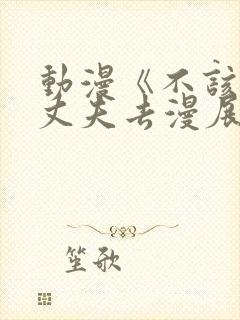 動漫《不該
丈夫去漫展
笙歌